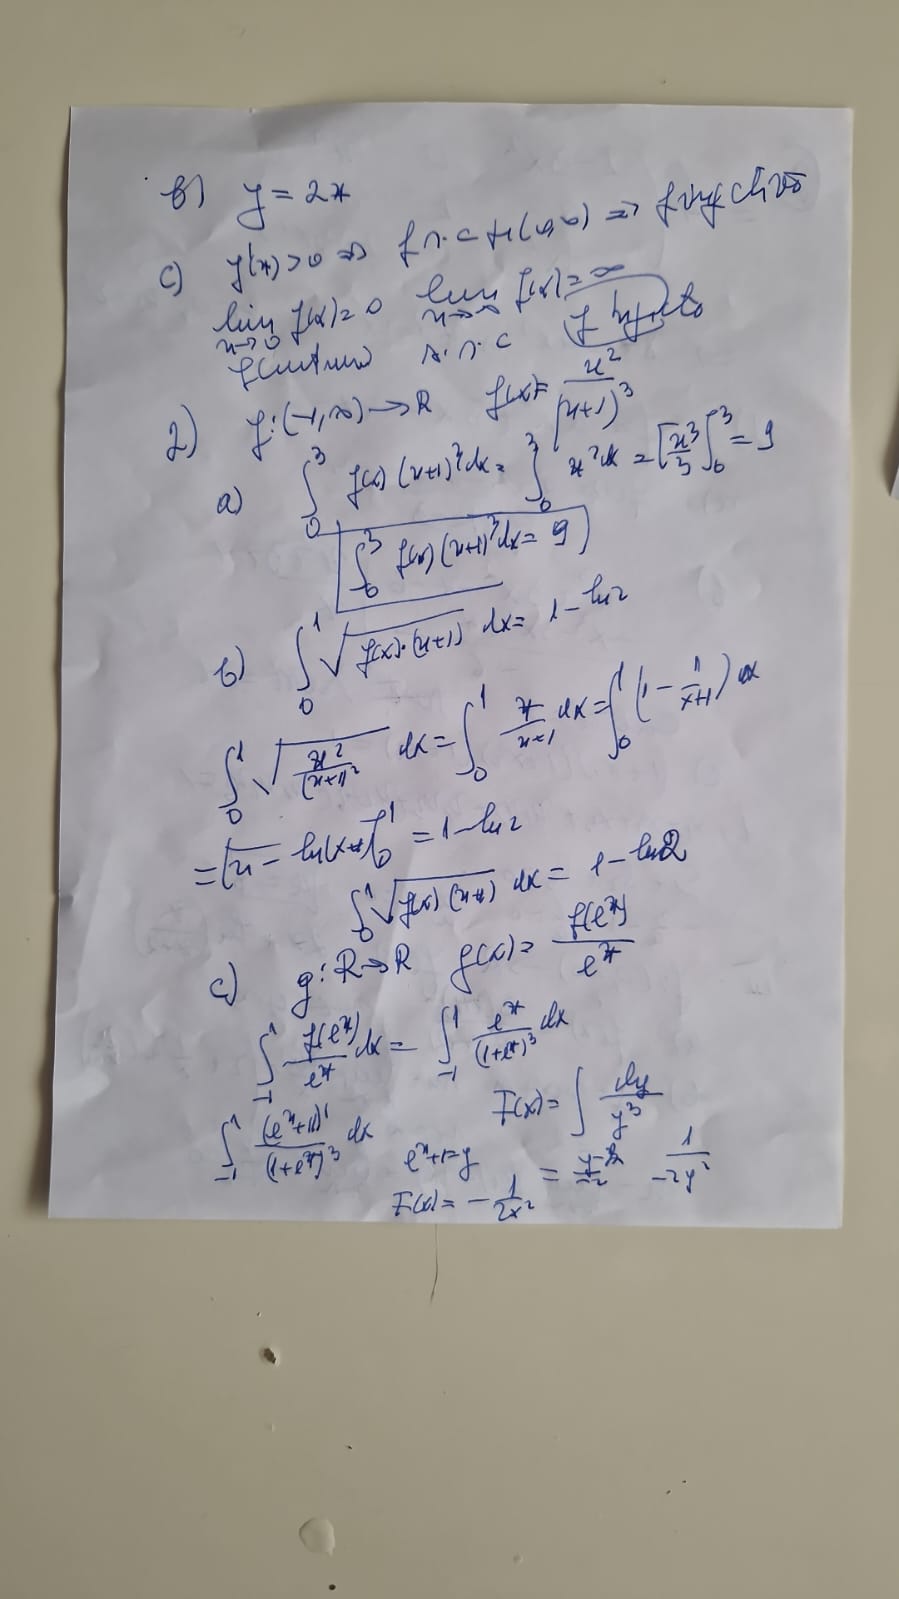 b) y = 2x
c) f'(x) > 0 ⇒ f s.c pe (0,∞) ⇒ f injectivă
lim x→0 f(x) = 0 lim x→∞ f(x) = ∞
f continuă
2) f: (-1,∞) → R f(x) = x²/(x+1)³
a) ∫₀³ f(x) (x+1)³ dx = ∫₀³ x² dx = [x³/3]₀³ = 9
∫₀³ f(x) (x+1)³ dx = 9
b) ∫₀¹ √(f(x)·(x+1)) dx = 1 - ln2
∫₀¹ √(x²/(x+1)²) dx = ∫₀¹ x/(x+1) dx = ∫₀¹ (1 - 1/(x+1)) dx
= [x - ln(x+1)]₀¹ = 1 - ln2
∫₀¹ √(f(x) (x+1)) dx = 1 - ln2
c) g: R → R g(x) = f(eˣ)/eˣ
∫₋₁¹ f(eˣ)/eˣ dx = ∫₋₁¹ eˣ/(1+eˣ)³ dx
∫₋₁¹ (eˣ+1)'/(1+eˣ)³ dx F(x) = ∫ dy/y³
eˣ+1=y = y⁻²/-2 1/-2y²
F(x) = -1/2x²